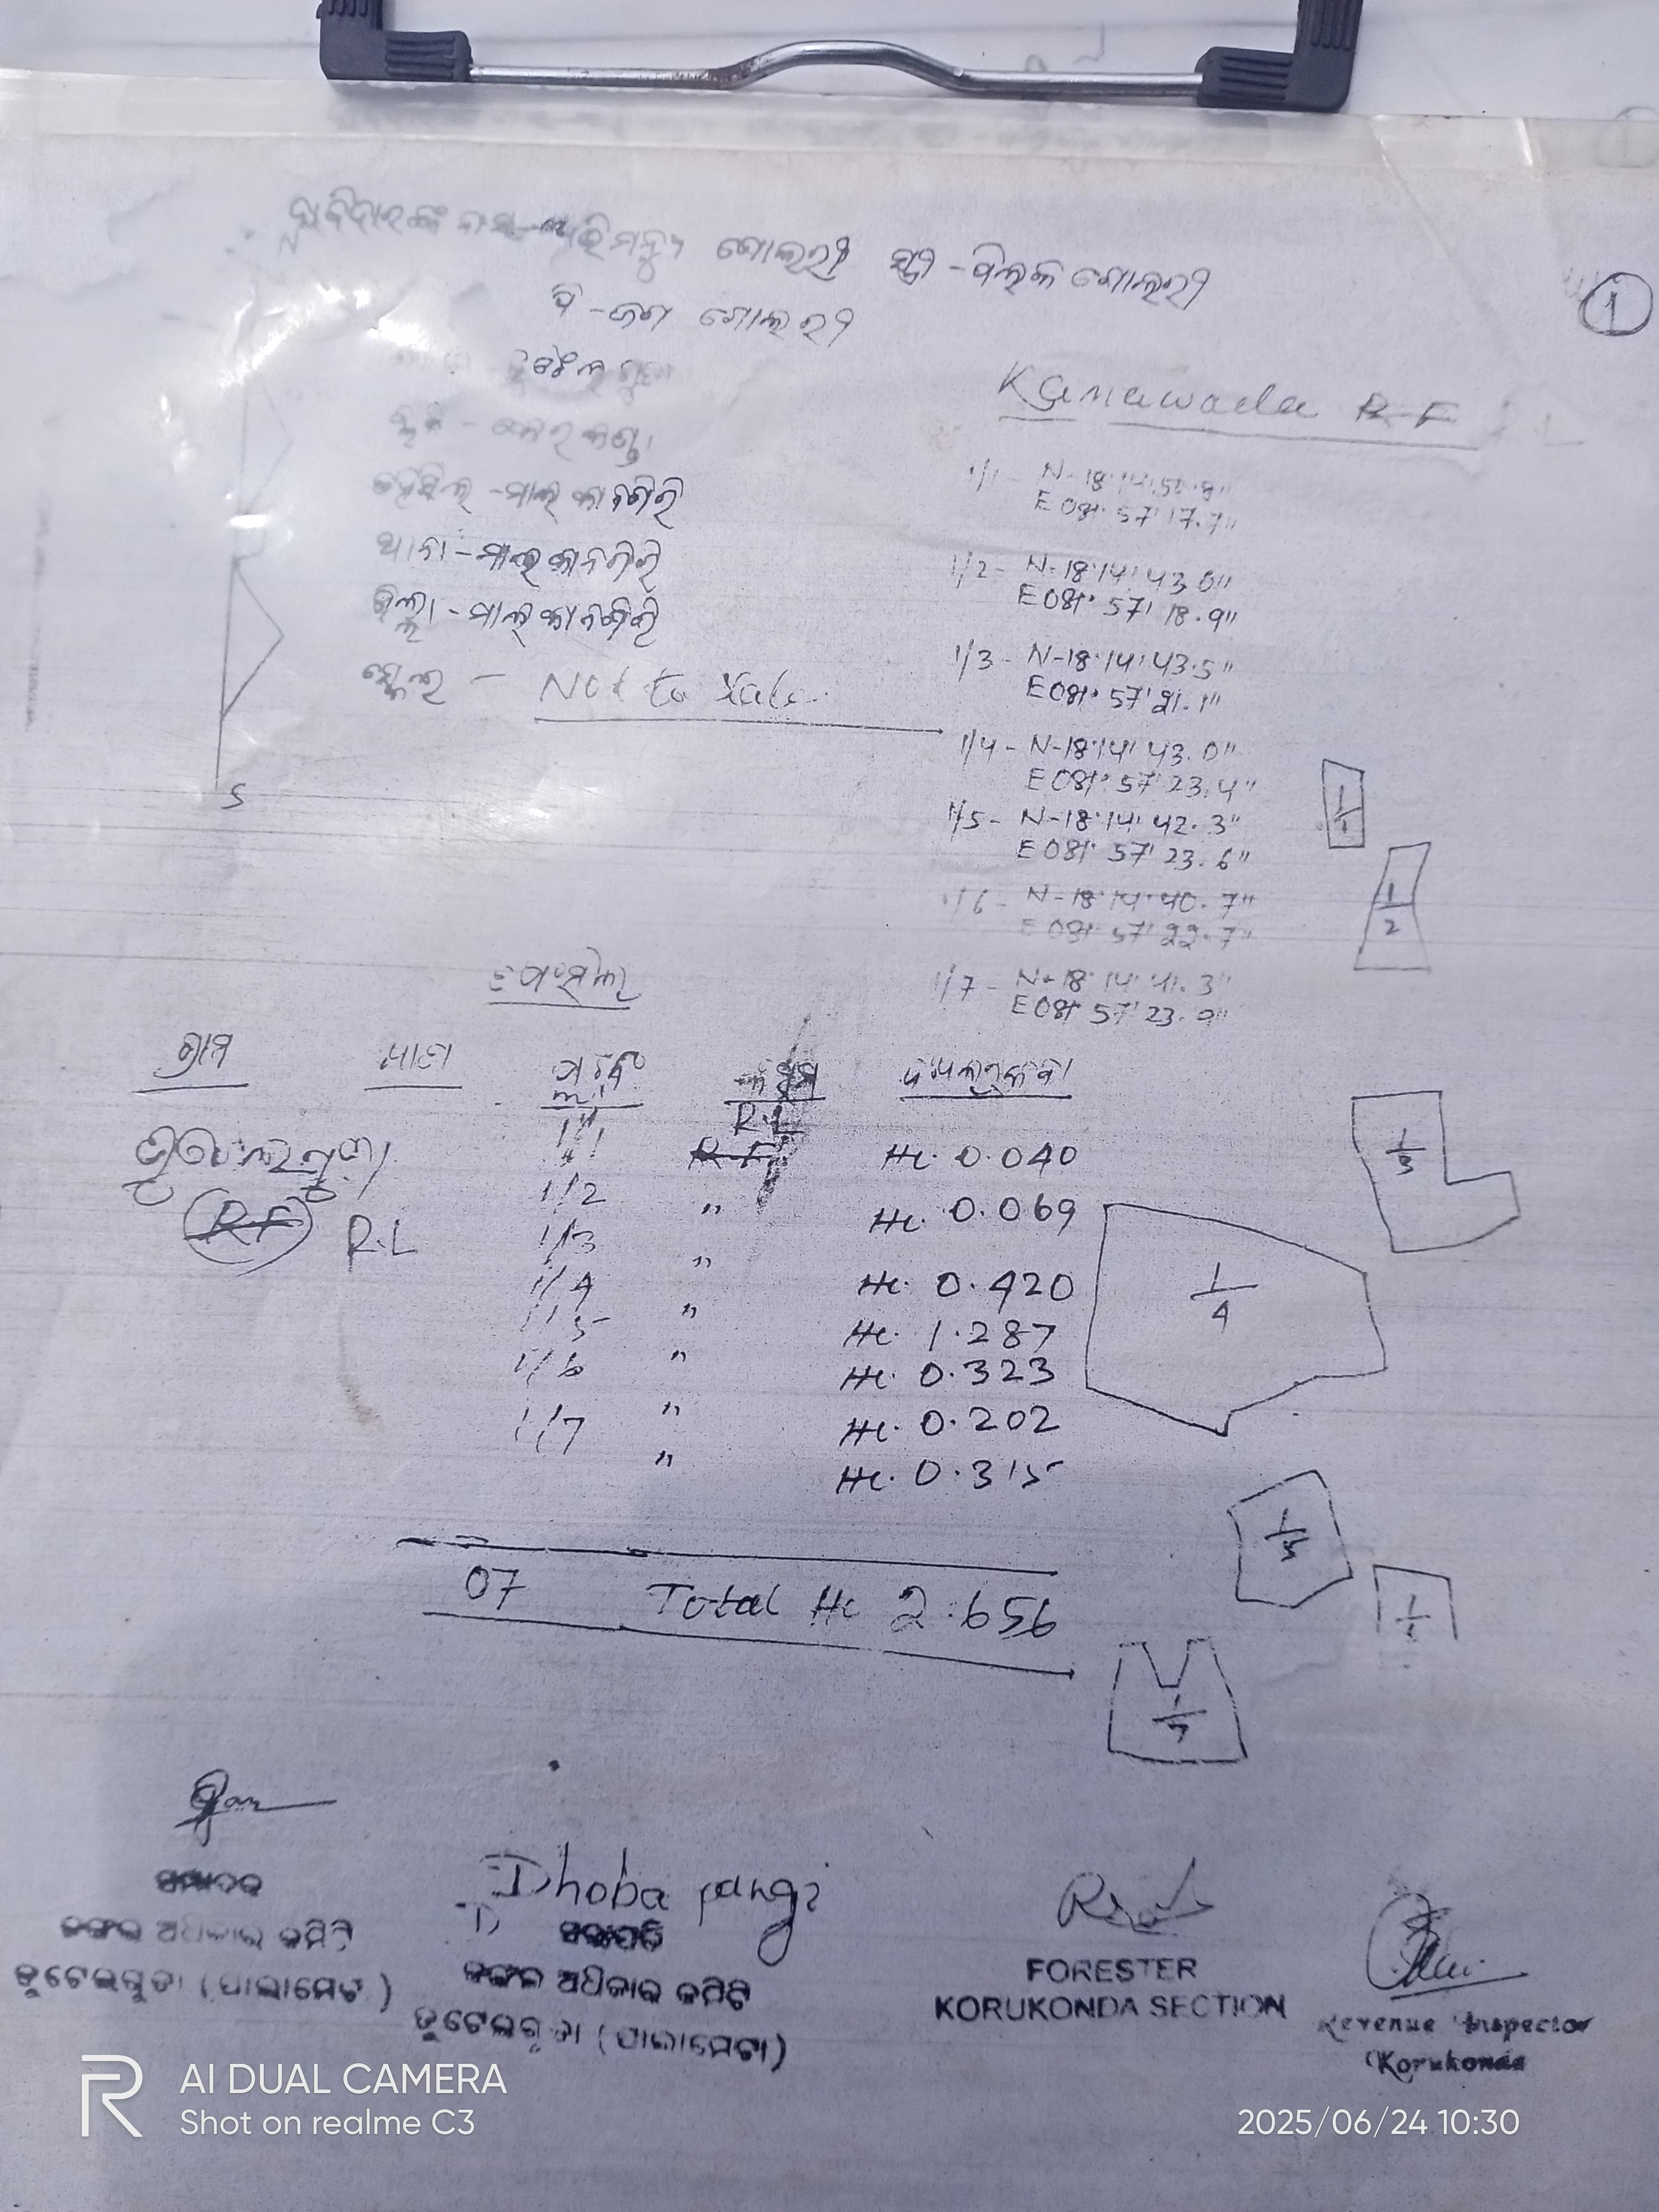 ଦାବିଦାରଙ୍କ ନାମ - ଅଭିମନ୍ୟୁ ଗୋଲରୀ ସ୍ତ୍ରୀ - ତିଲକ ଗୋଲରୀ
ପି - ଜଗ ଗୋଲରୀ
1
Kanawada R F
ବୃତ୍ତ - କୋରକଣ୍ଡା
ତହସିଲ - ମାଲକାନଗିରି
ଥାନା - ମାଲକାନଗିରି
ଜିଲ୍ଲା - ମାଲକାନଗିରି
ସ୍କେଲ - Not to
S
1/1 - N-18°14'50.8"
E 081° 57' 17.7"
1/2 - N-18°14' 43.0"
E 081° 57' 18.9"
1/3 - N-18°14' 43.5"
E 081° 57' 21.1"
1/4 - N-18°14' 43.0"
E 081° 57' 23.4"
1/5 - N-18°14' 42.3"
E 081° 57' 23.6"
1/6 - N-18°14' 40.7"
E 081° 57' 22.7"
1/7 - N-18°14' 41.3"
E 081° 57' 23.9"
1/1
1/2
ତପସିଲ
ଗ୍ରାମ ଖାତା
R.L
1/1 R F Hc. 0.040
1/2 " Hc. 0.069
RF R.L 1/3 " Hc. 0.420
1/4 " Hc. 1.287
1/5 " Hc. 0.323
1/6 " Hc. 0.202
1/7 " Hc. 0.315
1/3
1/4
1/5
07 Total Hc 2.656
1/7
Dhoba pangi
ସମ୍ପାଦକ
ଜଙ୍ଗଲ ଅଧିକାର କମିଟି
ଡୁଟେଇଗୁଡା (ପାଲାମେଟା)
ସଭାପତି
ଜଙ୍ଗଲ ଅଧିକାର କମିଟି
ଡୁଟେଇଗୁଡା (ପାଲାମେଟା)
FORESTER
KORUKONDA SECTION
Revenue Inspector
Korukonda
AI DUAL CAMERA
Shot on realme C3
2025/06/24 10:30